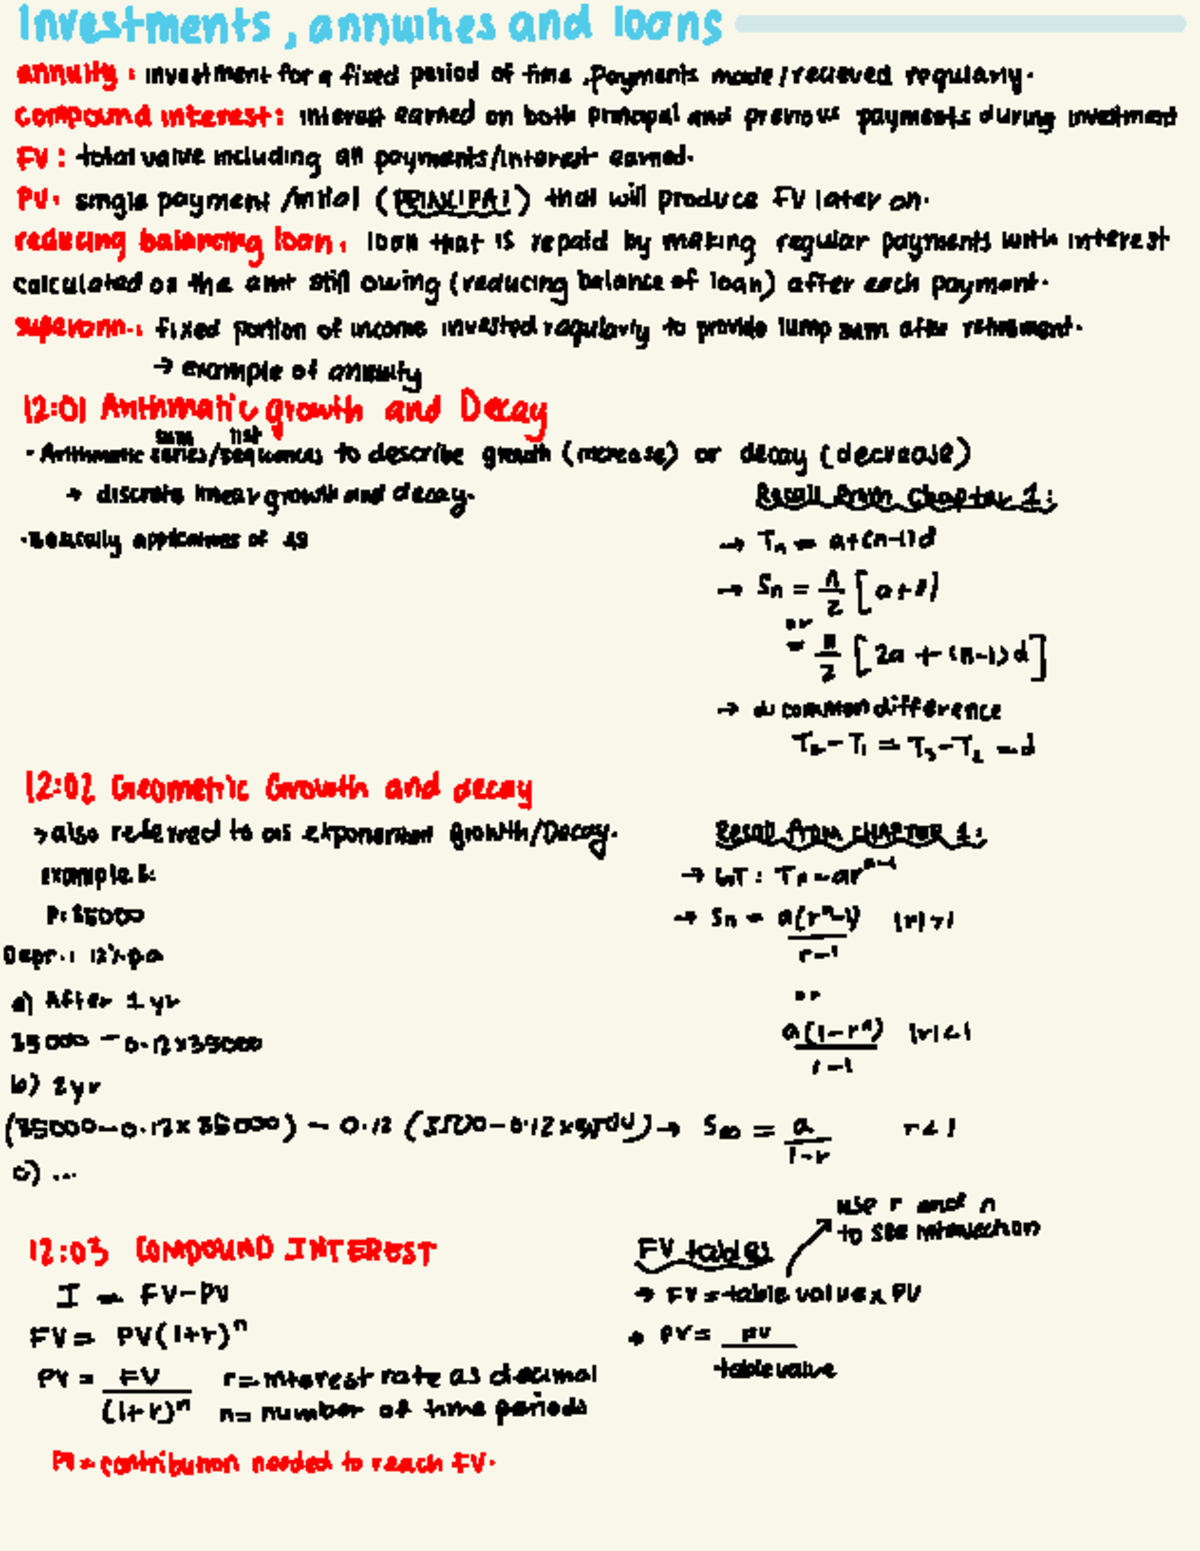 Investments, annuities and loans
annuity: investment for a fixed period of time. Payments made/recieved regularly.
compound interest: interest earned on both principal and previous payments during investment
FV: total value including all payments/interest earned.
PV: single payment/initial (PRINCIPAL) that will produce FV later on.
reducing balancing loan: loan that is repaid by making regular payments with interest
calculated on the amt still owing (reducing balance of loan) after each payment.
superann.: fixed portion of income invested regularly to provide lump sum after retirement.
→ example of annuity
12:01 Arithmatic growth and Decay
sum list
- Arithmatic series/sequences to describe growth (increase) or decay (decrease)
→ discrete linear growth and decay.
Recall from Chapter 1:
- Basically applications of
→ Tn = a+(n-1)d
→ Sn = n/2 [a+l]
or
= n/2 [2a + (n-1)d]
→ d: common difference
T2-T1 = T3-T2 = d
12:02 Geometric Growth and decay
→ also referred to as exponential growth/Decay.
Recall from CHAPTER 1:
example
P: 35000
Depr.: 12% pa
a) After 1 yr
35000 - 0.12x35000
b) 2yr
(35000-0.12x35000) - 0.12 (3500-0.12x
c) ...
Tn=ar^n-1
→ Sn = a(r^n-1)/r-1 |r|>1
or
a(1-r^n)/ |r|<1
→ S∞ = a/1-r r<1
12:03 COMPOUND INTEREST
I = FV-PV
FV = PV(1+r)^n
PV = FV/(1+r)^n
r=interest rate as decimal
n= number of time periods
PV=contribution needed to reach FV.
FV tables
use r and n
to see intersection
→ FV=table value x PV
→ PV=
table value